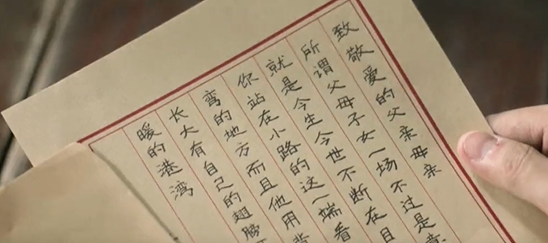 致敬爱的父亲母亲
所谓父母子女一场不过是
就是今生今世不断在目
你站在小路的这一端看
弯的地方而且他用背
长大有自己的翅膀
暖的港湾